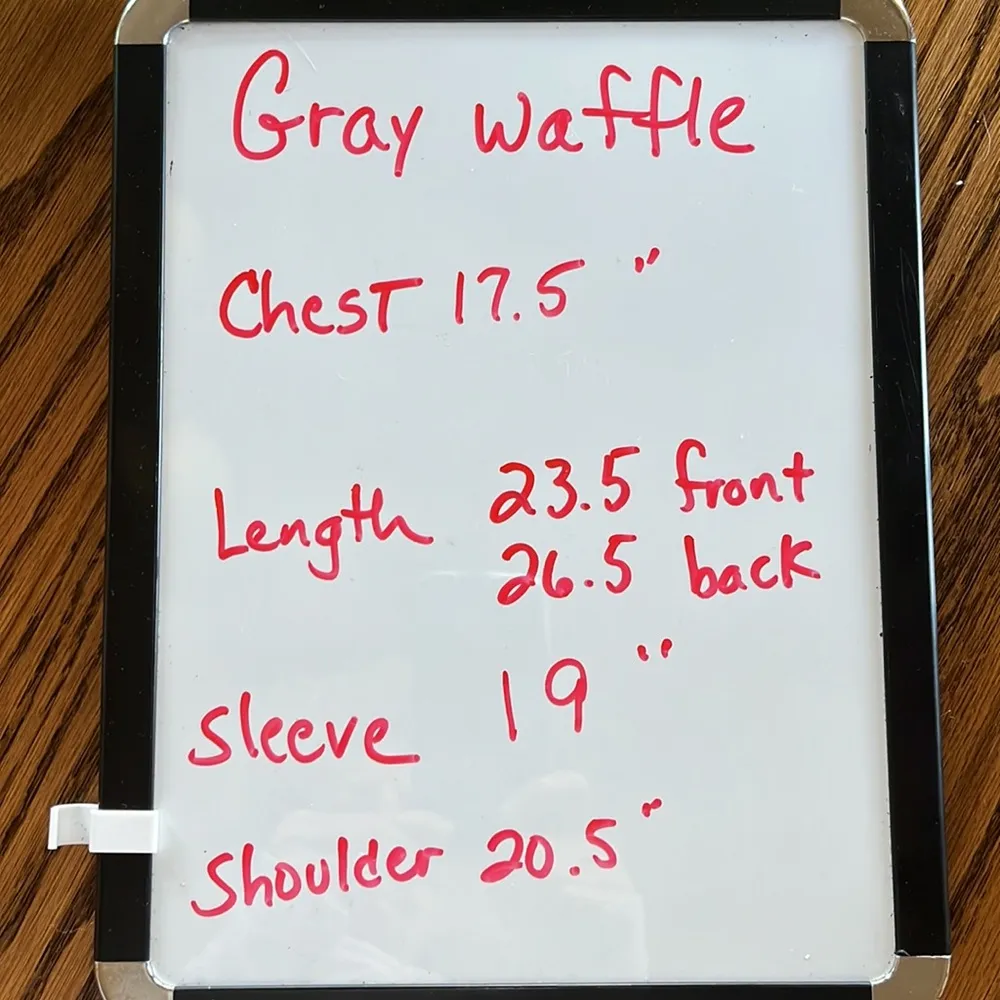 Gray waffle
Chest 17.5"
Length 23.5 front
26.5 back
Sleeve 19"
Shoulder 20.5"